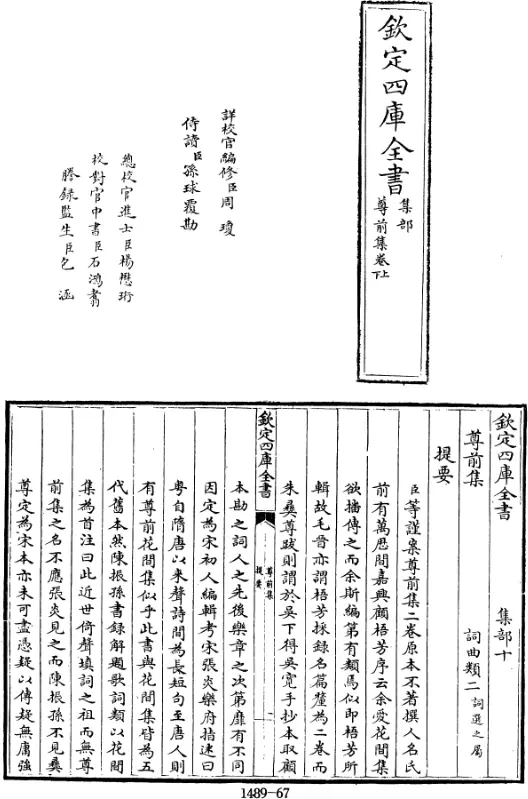 欽定四庫全書
集部
尊前集卷上下
詳校官編修臣周瓊
侍讀臣孫球覆勘
總校官進士臣楊懋珩
校對官中書臣石鴻翥
謄錄監生臣乞涵
欽定四庫全書 集部十
尊前集 詞曲類二 詞選之屬
提要
臣等謹案尊前集二卷原本不著撰人名氏
前有萬厯間嘉興顧梧芳序云余愛花間集
欲播傳之而余斯編第有類焉似即梧芳所
輯故毛晉亦謂梧芳採録名篇釐為二卷而
朱彞尊跋則謂於吳下得吳寛手抄本取顧
本勘之詞人之先後樂章之次第靡有不同
因定為宋初人編輯考宋張炎樂府指迷曰
粤自隋唐以來聲詩間為長短句至唐人則
有尊前花間集似乎此書與花間集皆為五
代舊本然陳振孫書録解題歌詞類以花間
集為首注曰此近世倚聲填詞之祖而無尊
前集之名不應張炎見之而陳振孫不見彞
尊定為宋本亦未可盡憑疑以傳疑無庸強
欽定四庫全書
尊前集
提要
1489-67